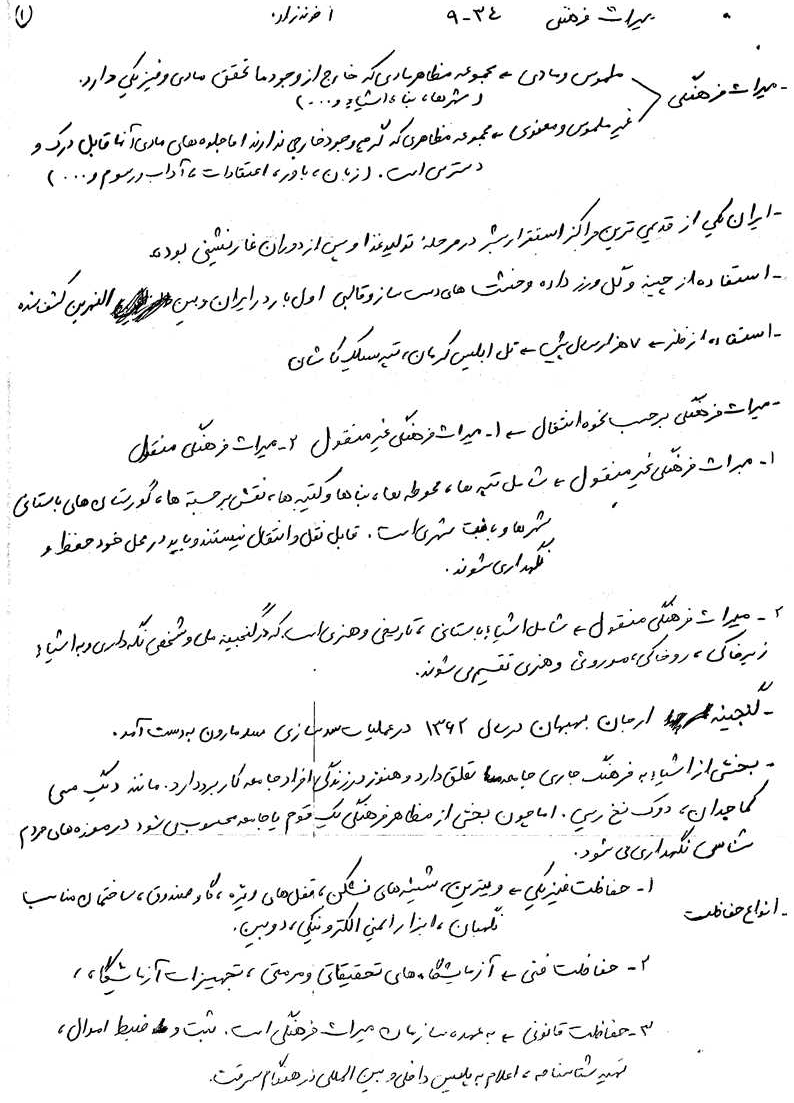 میراث فرهنگی ۳۴-۹ آخوندزاده ۱
- میراث فرهنگی ملموس و مادی ← مجموعه مظاهر مادی که خارج از وجود ما تحقق مادی و فیزیکی دارد.
(شهرها، بنا، اشیاء و ...)
غیر ملموس و معنوی ← مجموعه مظاهری که گرچه وجود خارجی ندارند اما جلوه های مادی آنها قابل درک و
دسترسی است. (زبان، باور، اعتقادات، آداب و رسوم و ...)
- ایران یکی از قدیمی ترین مراکز استقرار بشر در مرحلهٔ تولید غذا و پس از دوران غارنشینی بوده
- استفاده از چینه و گل ورز داده و خشت های دست ساز و قالبی اول بار در ایران و بین النهرین کشف شده
- استفاده از فلز ← ۷ هزار سال پیش ← تل ابلیس کرمان، تپه سیلک کاشان
- میراث فرهنگی بر حسب نحوه انتقال ← ۱- میراث فرهنگی غیر منقول ۲- میراث فرهنگی منقول
۱- میراث فرهنگی غیر منقول ← شامل تپه ها، محوطه ها، بناها و کتیبه ها، نقش برجسته ها، گورستان های باستانی
شهرها و بافت شهری است. قابل نقل و انتقال نیستند و باید در محل خود حفظ و
نگهداری شوند.
۲- میراث فرهنگی منقول ← شامل اشیاء باستانی، تاریخی و هنری است که در گنجینه ملی و شخصی نگه داری و به اشیاء
زیرخاکی، روخاکی، موروثی و هنری تقسیم می شوند.
- گنجینه ارجان بهبهان در سال ۱۳۶۲ در عملیات سد سازی سد مارون به دست آمد.
- بخشی از اشیاء به فرهنگ جاری جامعه تعلق دارد و هنوز در زندگی افراد جامعه کاربرد دارد. مانند دیگ مسی
کماجدان، دوک نخ ریسی. اما چون بخشی از مظاهر فرهنگی یک قوم یا جامعه محسوب می شود در موزه های مردم
شناسی نگهداری می شود.
- انواع حفاظت ۱- حفاظت فیزیکی ← ویترین، شیشه های نشکن، قفل های ویژه، گاو صندوق، ساختمان مناسب
نگهبان، ابزار ایمنی الکترونیکی، دوربین.
۲- حفاظت فنی ← آزمایشگاه های تحقیقاتی و مرمتی، تجهیزات آزمایشگاه،
۳- حفاظت قانونی ← به عهده سازمان میراث فرهنگی است. ثبت و ضبط اموال،
تهیه شناسنامه، اعلام به پلیس داخلی و بین المللی در هنگام سرقت.